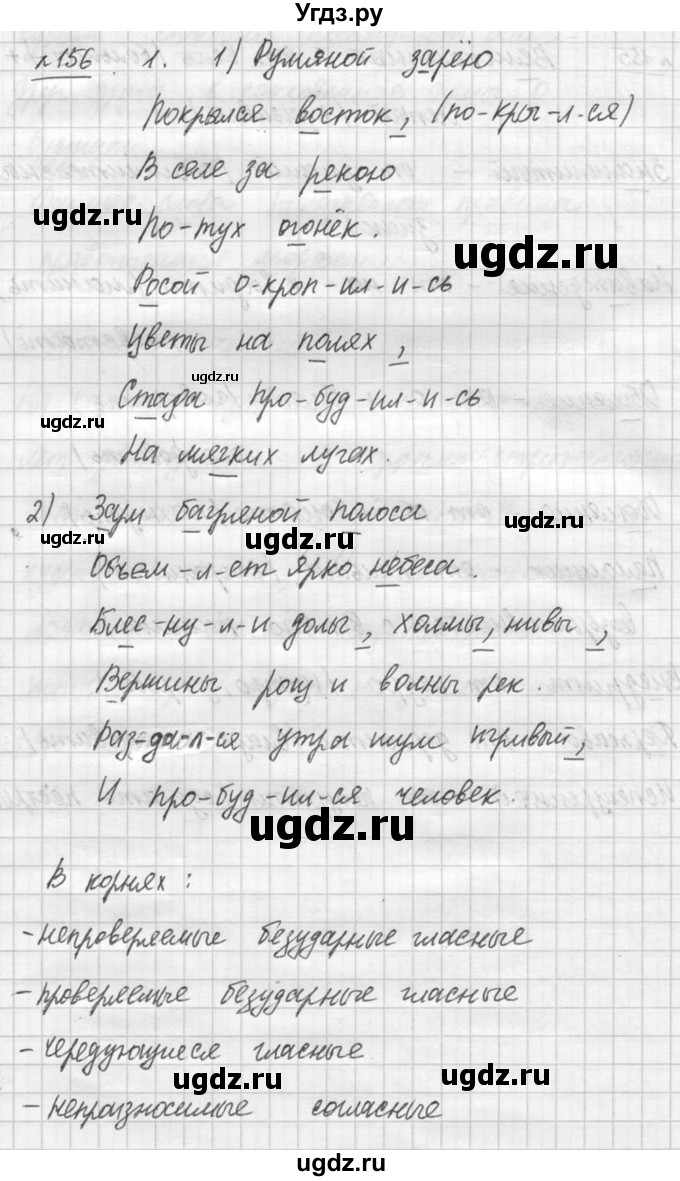 Угдз.ру
№156 1. 1) Румяной зарёю
Покрылся восток, (по-кры-л-ся)
В селе за рекою
ugdz.ru ugdz.ru
По-тух огонёк.
Росой о-кроп-ил-и-сь
Цветы на полях,
ugdz.ru
Стада про-буд-ил-и-сь
На мягких лугах.
2) Зари багряной полоса
ugdz.ru ugdz.ru
Объем-л-ет ярко небеса.
Блес-ну-л-и долы, холмы, нивы,
Вершины рощ и волны рек.
Раз-да-л-ся утра шум игривый,
И про-буд-ил-ся человек.
ugdz.ru
В корнях:
-непроверяемые безударные гласные
-проверяемые безударные гласные
-чередующиеся гласные
ugdz.ru ugdz.ru
-непроизносимые согласные
ugdz.ru